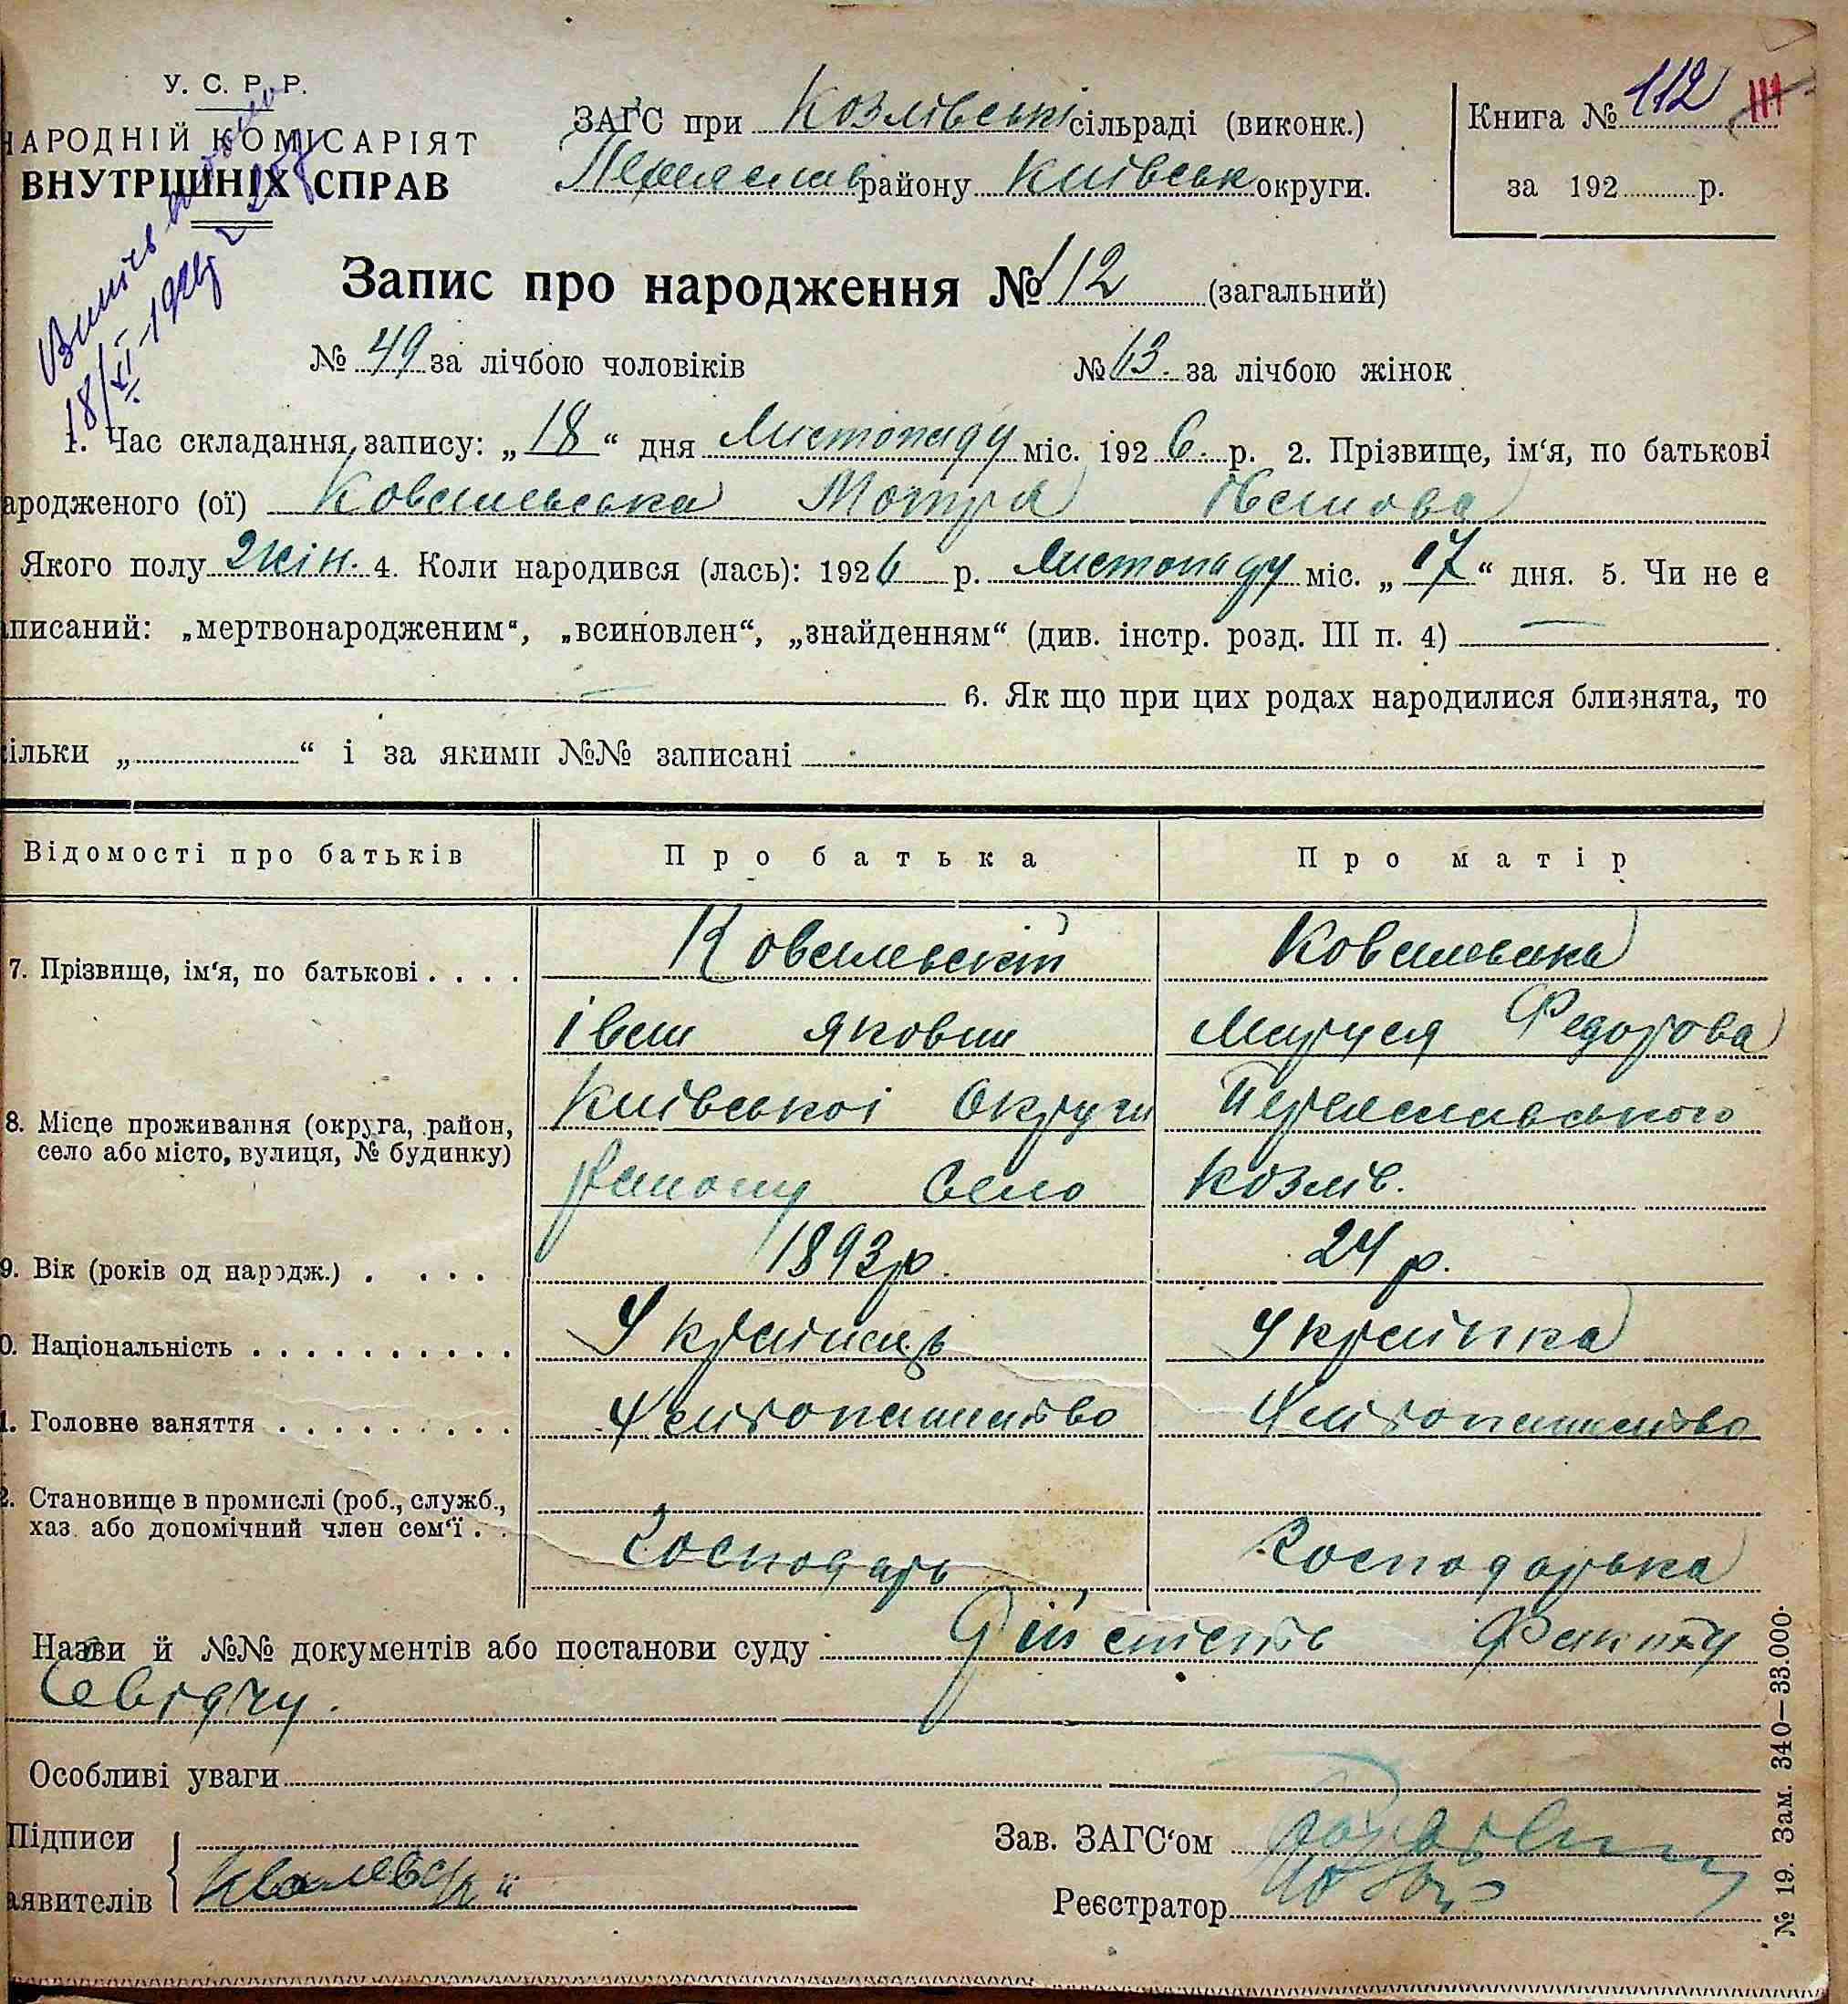 У. С. Р. Р.
НАРОДНІЙ КОМІСАРІЯТ
ВНУТРІШНІХ СПРАВ
ЗАГС при Козлівські сільраді (виконк.)
Переяслав району Київськ округи.
Книга № 112 111
за 192 р.
18/XI-1926
Запис про народження № 112 (загальний)
№ 49 за лічбою чоловіків № 63. за лічбою жінок
1. Час складання запису: „18“ дня Листопаду міс. 1926 р. 2. Прізвище, ім‘я, по батькові
ародженого (ої) Ковалевська Мотря Іванова
Якого полу жін. 4. Коли народився (лась): 1926 р. листопаду міс. „17“ дня. 5. Чи не є
писаний: „мертвонародженим“, „всиновлен“, „знайденням“ (див. інстр. розд. III п. 4) —
— 6. Як що при цих родах народилися близнята, то
кільки „ “ і за якими №№ записані
Відомості про батьків Про батька Про матір
7. Прізвище, ім‘я, по батькові . . . . Ковалевський Ковалевська
Іван Яковин Маруся Федорова
8. Місце проживання (округа, район, село або місто, вулиця, № будинку) Київської Округи Переяславського
району село Козлів.
9. Вік (років од народж.) . . . . 1893 р. 24 р.
0. Національність . . . . . . . . . . Українець Українка
1. Головне заняття . . . . . . . . . Хлібопашество Хлібопашество
2. Становище в промислі (роб., служб.,
хаз. або допомічний член сем‘ї . . Господарь Господарька
Назви й №№ документів або постанови суду Дійсність Факту
Свідчу.
Особливі уваги
Підписи
аявителів
Зав. ЗАГС‘ом
Реєстратор
№ 19. Зам. 340—33.000.